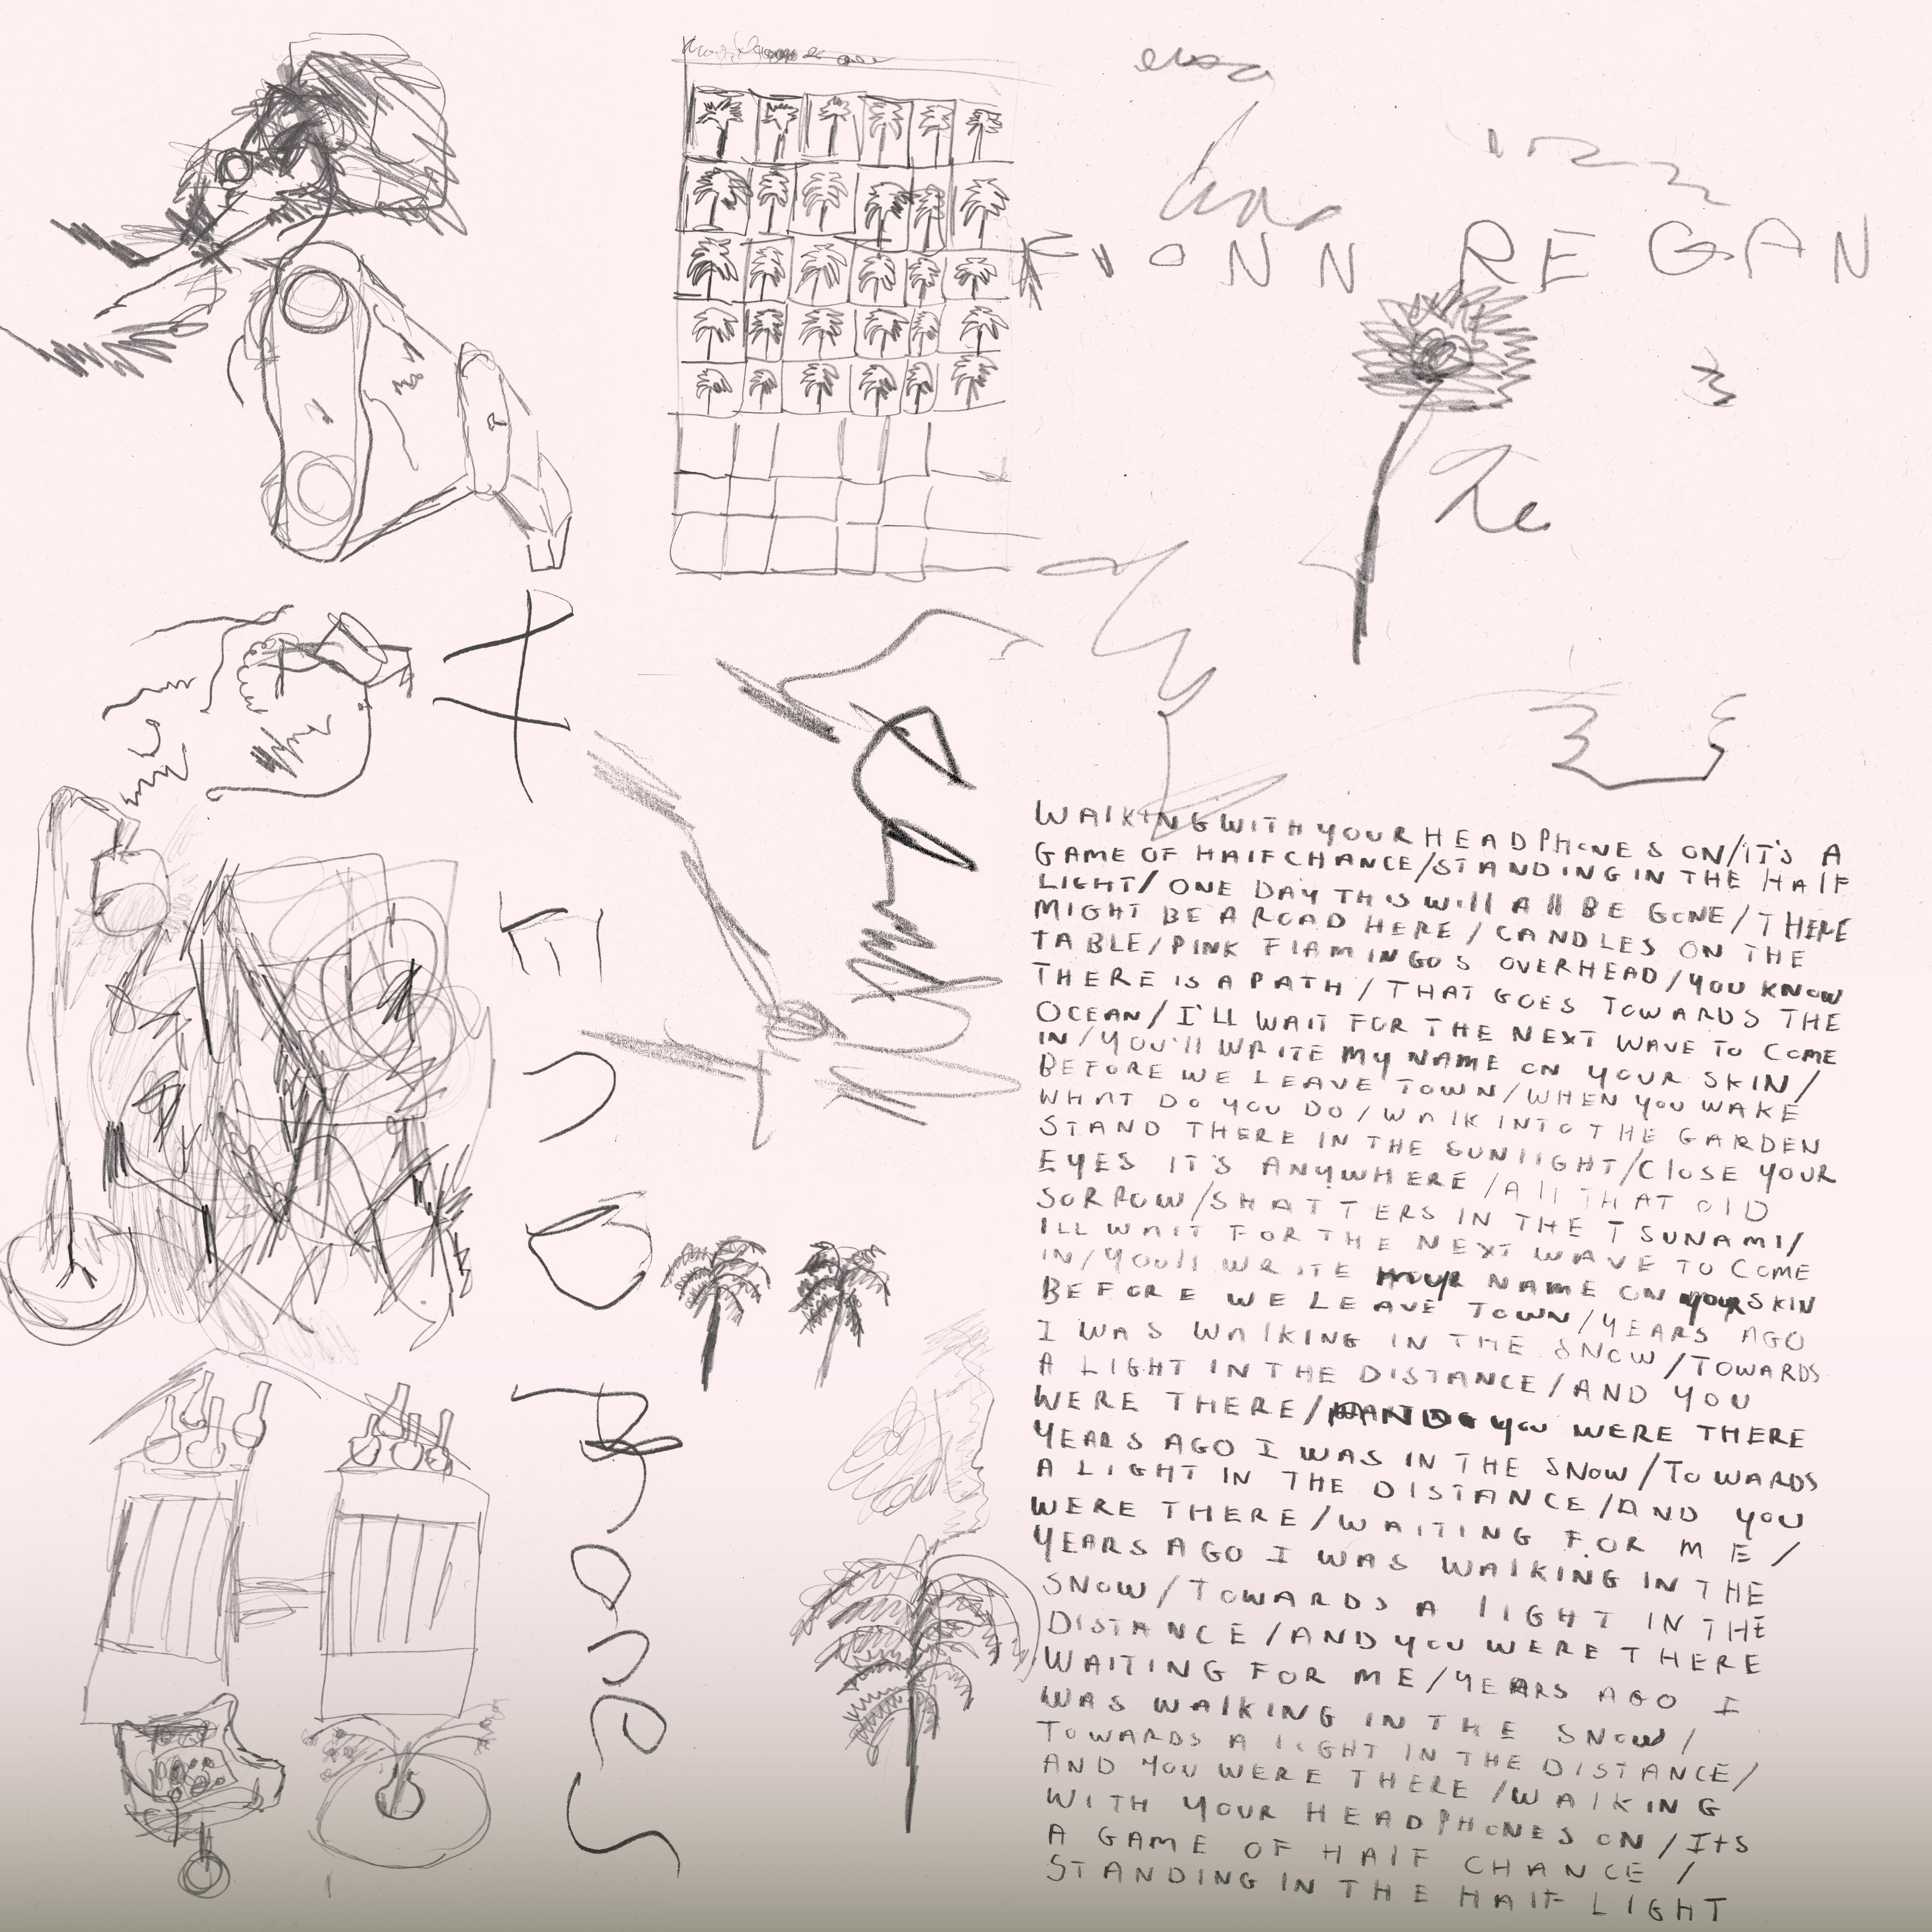 FIONN REGAN
WAlKING WITH YOUR HEADPHONES ON/IT'S A
GAME OF HAlF CHANCE/STANDING IN THE HAlF
LIGHT/ ONE DAY THIS WIll All BE GONE/THERE
MIGHT BE A ROAD HERE/CANDLES ON THE
TABLE/PINK FlAMINGOS OVERHEAD/YOU KNOW
THERE IS A PATH/THAT GOES TOWARDS THE
OCEAN/I'LL WAIT FOR THE NEXT WAVE TO COME
IN/YOU'll WRITE MY NAME ON YOUR SKIN/
BEFORE WE LEAVE TOWN/WHEN YOU WAKE
WHAT DO YOU DO/WAlK INTO THE GARDEN
STAND THERE IN THE SUNlIGHT/ClOSE YOUR
EYES IT'S ANYWHERE/All THAT OlD
SORROW/SHATTERS IN THE TSUNAMI/
ILL WAIT FOR THE NEXT WAVE TO COME
IN/YOUll WRITE YOUR NAME ON YOUR SKIN
BEFORE WE LEAVE TOWN/YEARS AGO
I WAS WAlKING IN THE SNOW/TOWARDS
A LIGHT IN THE DISTANCE/AND YOU
WERE THERE/AND YOU WERE THERE
YEARS AGO I WAS IN THE SNOW/TOWARDS
A LIGHT IN THE DISTANCE/AND YOU
WERE THERE/WAITING FOR ME/
YEARS AGO I WAS WAlKING IN THE
SNOW/TOWARDS A lIGHT IN THE
DISTANCE/AND YOU WERE THERE
WAITING FOR ME/YEARS AGO I
WAS WAlKING IN THE SNOW/
TOWARDS A lIGHT IN THE DISTANCE/
AND YOU WERE THERE/WAlKING
WITH YOUR HEADPHONES ON/ITS
A GAME OF HAlF CHANCE/
STANDING IN THE HAlF LIGHT